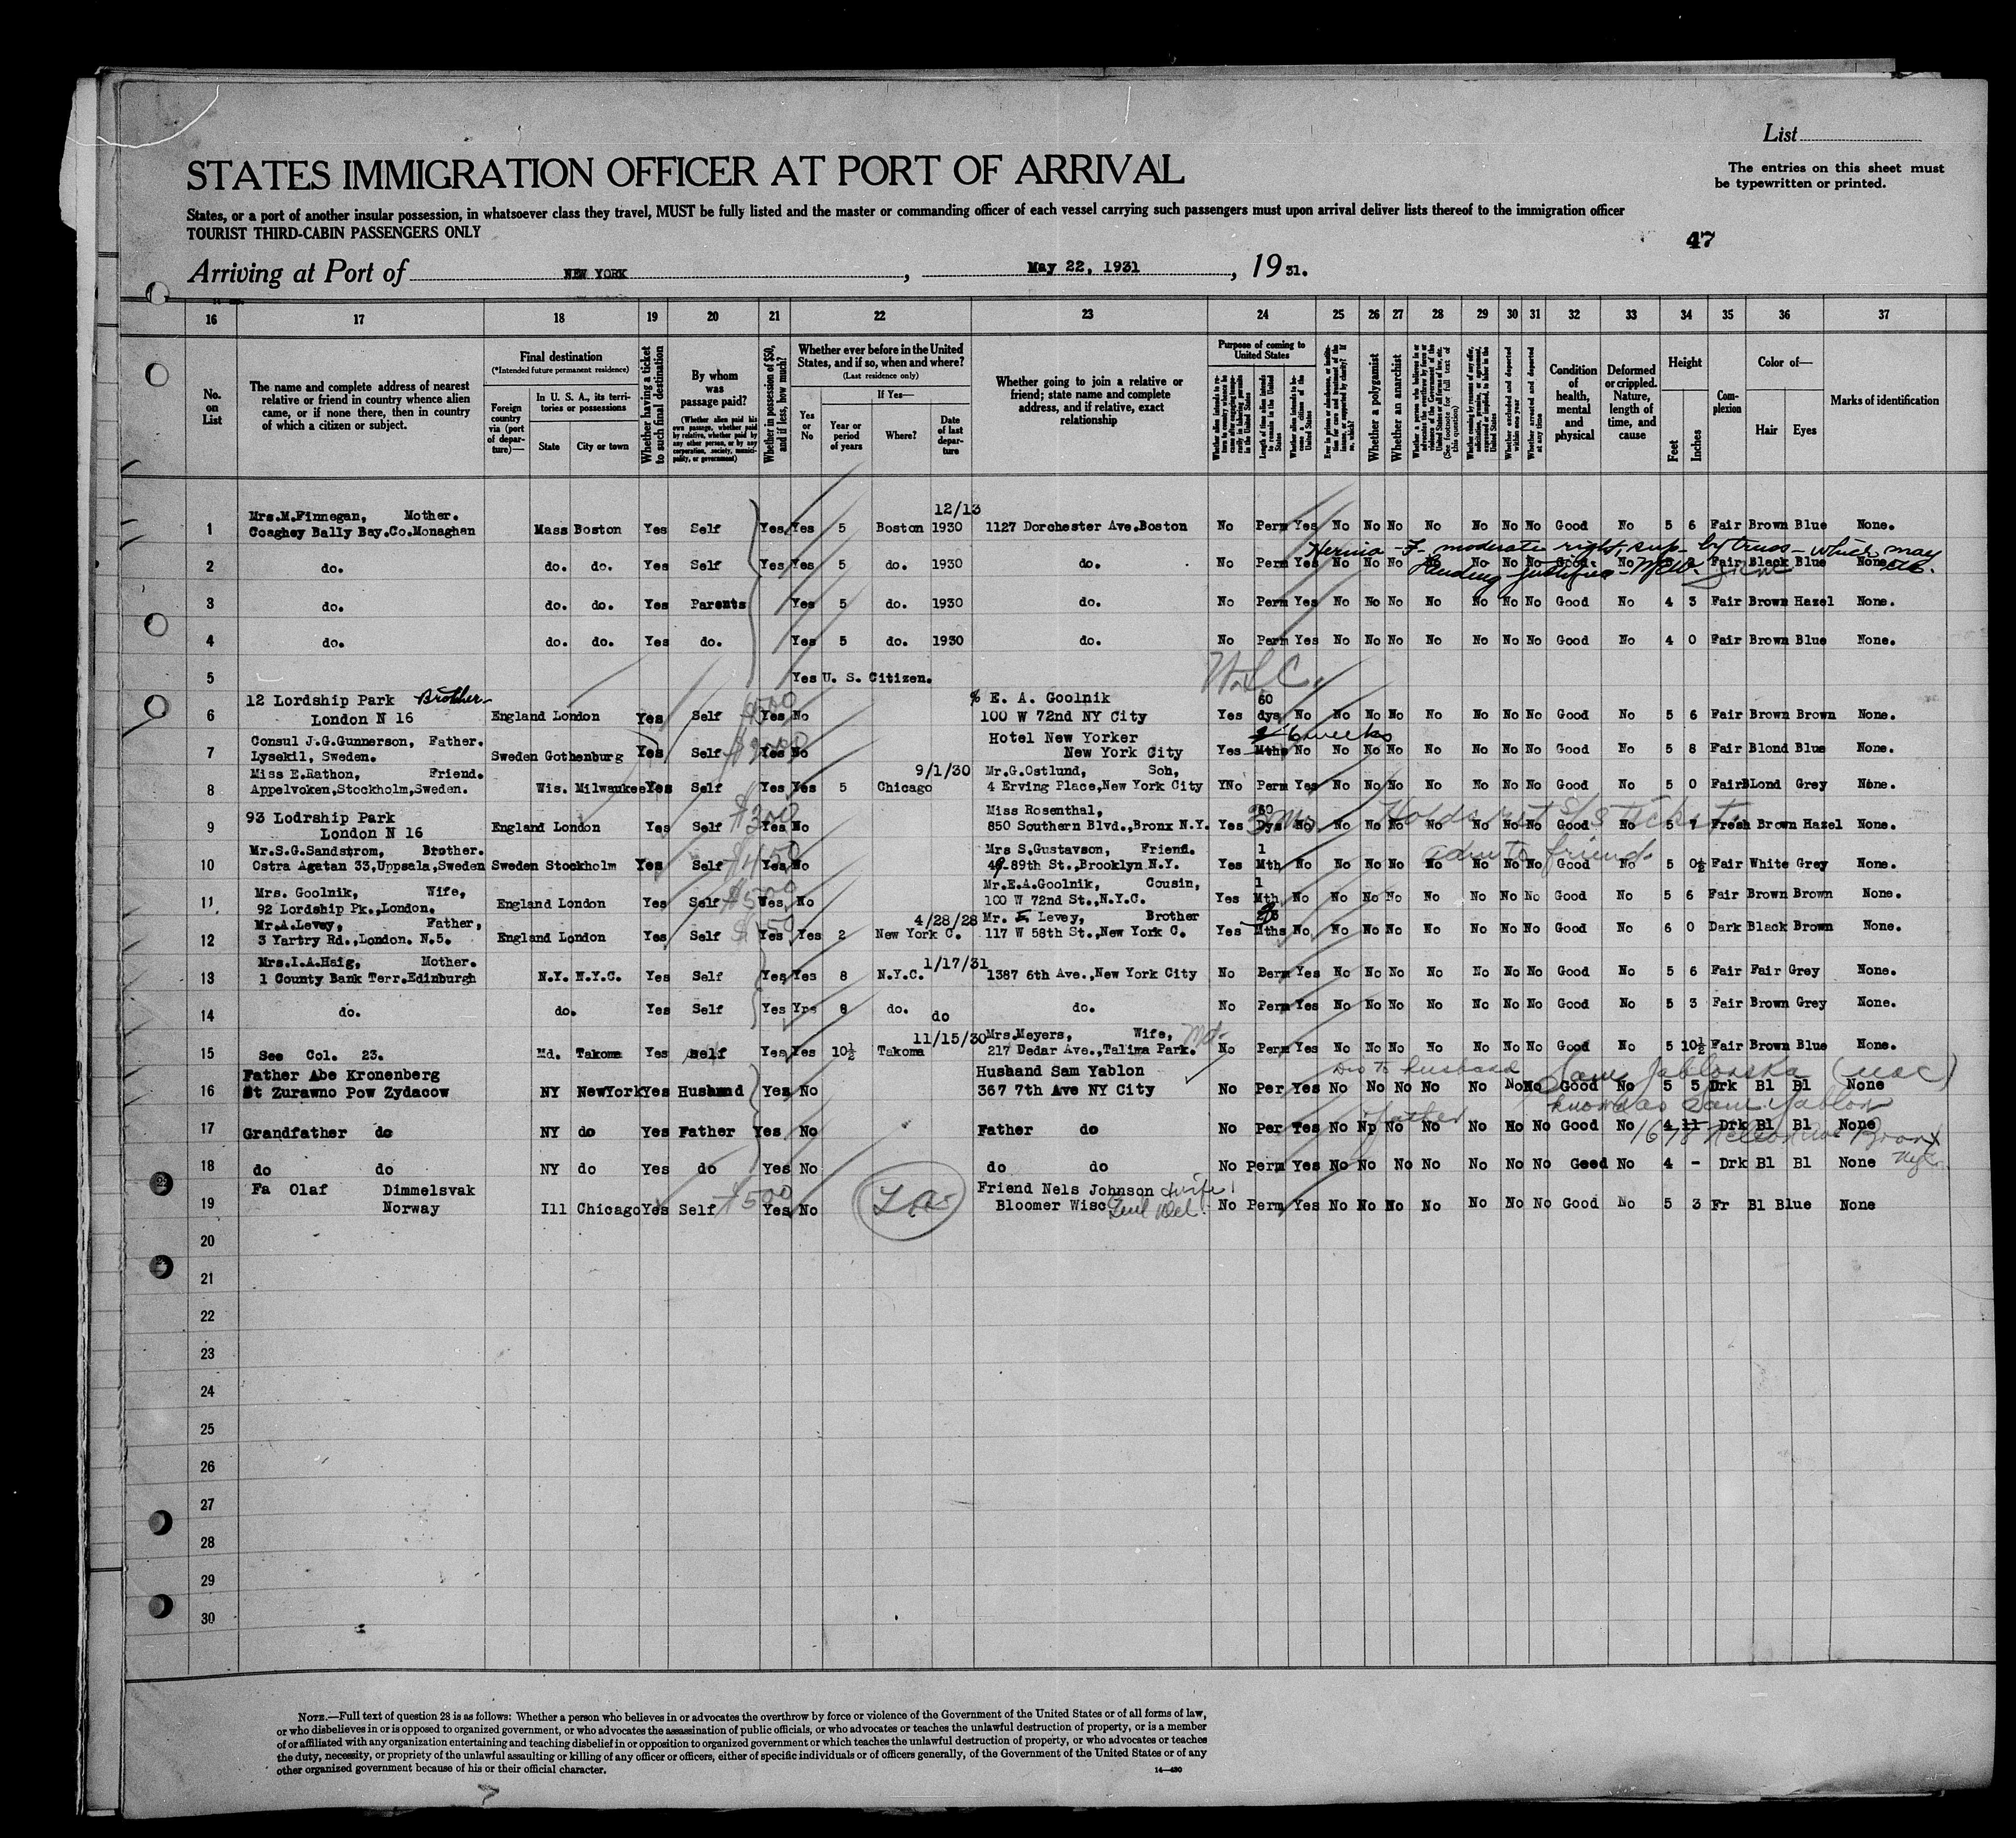 List
The entries on this sheet must
be typewritten or printed.
STATES IMMIGRATION OFFICER AT PORT OF ARRIVAL
States, or a port of another insular possession, in whatsoever class they travel, MUST be fully listed and the master or commanding officer of each vessel carrying such passengers must upon arrival deliver lists thereof to the immigration officer
TOURIST THIRD-CABIN PASSENGERS ONLY
47
Arriving at Port of NEW YORK, May 22, 1931, 1931.
16 17 18 19 20 21 22 23 24 25 26 27 28 29 30 31 32 33 34 35 36 37
No. on List
The name and complete address of nearest relative or friend in country whence alien came, or if none there, then in country of which a citizen or subject.
Final destination
(*Intended future permanent residence)
Foreign country via (port of departure)—
In U. S. A., its territories or possessions
State
City or town
Whether having a ticket to such final destination
By whom was passage paid?
(Whether alien paid his own passage, whether paid by relative, whether paid by any other person, or by any corporation, society, municipality, or government)
Whether in possession of $50, and if less, how much?
Whether ever before in the United States, and if so, when and where?
(Last residence only)
Yes or No
If Yes—
Year or period of years
Where?
Date of last departure
Whether going to join a relative or friend; state name and complete address, and if relative, exact relationship
Purpose of coming to United States
Length of time alien intends to remain in the United States
Whether alien intends to become a citizen of the United States
Whether a polygamist
Whether an anarchist
Whether excluded and deported within one year
Whether arrested and deported at any time
Condition of health, mental and physical
Deformed or crippled. Nature, length of time, and cause
Height
Feet
Inches
Complexion
Color of—
Hair
Eyes
Marks of identification
12/13
Mrs.M.Finnegan, Mother.
1 Coaghey Bally Bay.Co.Monaghan Mass Boston Yes Self Yes Yes 5 Boston 1930 1127 Dorchester Ave.Boston No Perm Yes No No No No No No No Good No 5 6 Fair Brown Blue None.
Hernia - F- moderate right, sup- by truss - which may
2 do. do. do. Yes Self Yes Yes 5 do. 1930 do. No Perm Yes No No No No No No No Good No Fair Black Blue None
3 do. do. do. Yes Parents Yes 5 do. 1930 do. No Perm Yes No No No No No No No Good No 4 3 Fair Brown Hazel None.
4 do. do. do. Yes do. Yes 5 do. 1930 do. No Perm Yes No No No No No No No Good No 4 0 Fair Brown Blue None.
5 Yes U. S. Citizen.
12 Lordship Park Brother % E. A. Goolnik 60
6 London N 16 England London Yes Self Yes No 100 W 72nd NY City Yes dys No No No No No No No No Good No 5 6 Fair Brown Brown None.
Consul J.G.Gunnerson, Father. Hotel New Yorker 6 weeks
7 Lysekil, Sweden. Sweden Gothenburg Yes Self Yes No New York City Yes Mths No No No No No No No No Good No 5 8 Fair Blond Blue None.
Miss E.Rathon, Friend. 9/1/30 Mr.G.Ostlund, Son,
8 Appelvoken,Stockholm,Sweden. Wis. Milwaukee Yes Self Yes Yes 5 Chicago 4 Erving Place,New York City YNo Perm Yes No No No No No No No Good No 5 0 Fair BLond Grey None.
93 Lodrship Park $200 Miss Rosenthal, Holds ret S/S Ticket
9 London N 16 England London Yes Self Yes No 850 Southern Blvd.,Bronx N.Y. Yes Dys No No No No No No No No Good No 5 7 Fresh Brown Hazel None.
Mr.S.G.Sandstrom, Brother. $150 Mrs S.Gustavson, Friend. 1 adm to friend
10 Ostra Agatan 33,Uppsala,Sweden Sweden Stockholm Yes Self Yes No 89th St.,Brooklyn N.Y. Yes Mth No No No No No No No No Good No 5 0½ Fair White Grey None.
Mrs. Goolnik, Wife, Mr.E.A.Goolnik, Cousin, 1
11 92 Lordship Pk.,London. England London Yes Self $500 Yes No 100 W 72nd St.,N.Y.C. Yes Mth No No No No No No No No Good No 5 6 Fair Brown Brown None.
Mr.A.Levey, Father, 4/28/28 Mr. Levey, Brother
12 3 Yartry Rd.,London. N.5. England London Yes Self Yes Yes 2 New York C. 117 W 58th St.,New York C. Yes Mths No No No No No No No No Good No 6 0 Dark Black Brown None.
Mrs.I.A.Haig, Mother. 1/17/31
13 1 County Bank Terr.Edinburgh N.Y. N.Y.C. Yes Self Yes Yes 8 N.Y.C. 1387 6th Ave.,New York City No Perm Yes No No No No No No No Good No 5 6 Fair Fair Grey None.
14 do. do. Yes Self Yes Yes 8 do. do do. No Perm Yes No No No No No No No Good No 5 3 Fair Brown Grey None.
11/15/30 Mrs.Meyers, Wife, Md.
15 See Col. 23. Md. Takoma Yes Self Yes Yes 10½ Takoma 217 Dedar Ave.,Talima Park. No Perm Yes No No No No No No No Good No 5 10½ Fair Brown Blue None.
Father Abe Kronenberg Husband Sam Yablon to husband Sam Jablonska (USC)
16 St Zurawno Pow Zydacow NY NewYork Yes Husband Yes No 367 7th Ave NY City No Per Yes No No No No No No No Good No 5 5 Drk Bl Bl None
known as Sam Yablon
father
17 Grandfather do NY do Yes Father Yes No Father do No Per Yes No No No No No No No Good No 4 11 Drk Bl Bl None
1678 Nelson Ave Bronx
NYC
18 do do NY do Yes do Yes No do do No Perm Yes No No No No No No No Good No 4 - Drk Bl Bl None
Fa Olaf Dimmelsvak $500 Friend Nels Johnson & wife
19 Norway Ill Chicago Yes Self Yes No Bloomer Wisc No Perm Yes No No No No No No No Good No 5 3 Fr Bl Blue None
20
21
22
23
24
25
26
27
28
29
30
NOTE.—Full text of question 28 is as follows: Whether a person who believes in or advocates the overthrow by force or violence of the Government of the United States or of all forms of law,
or who disbelieves in or is opposed to organized government, or who advocates the assassination of public officials, or who advocates or teaches the unlawful destruction of property, or is a member
of or affiliated with any organization entertaining and teaching disbelief in or opposition to organized government or which teaches the unlawful destruction of property, or who advocates or teaches
the duty, necessity, or propriety of the unlawful assaulting or killing of any officer or officers, either of specific individuals or of officers generally, of the Government of the United States or of any
other organized government because of his or their official character.
14—430